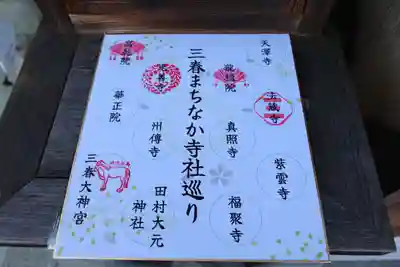 天澤寺
龍穏院
法蔵寺
真照寺
紫雲寺
福聚寺
三春まちなか寺社巡り
光善寺
州傳寺
田村大元
神社
高乾院
華正院
三春大神宮